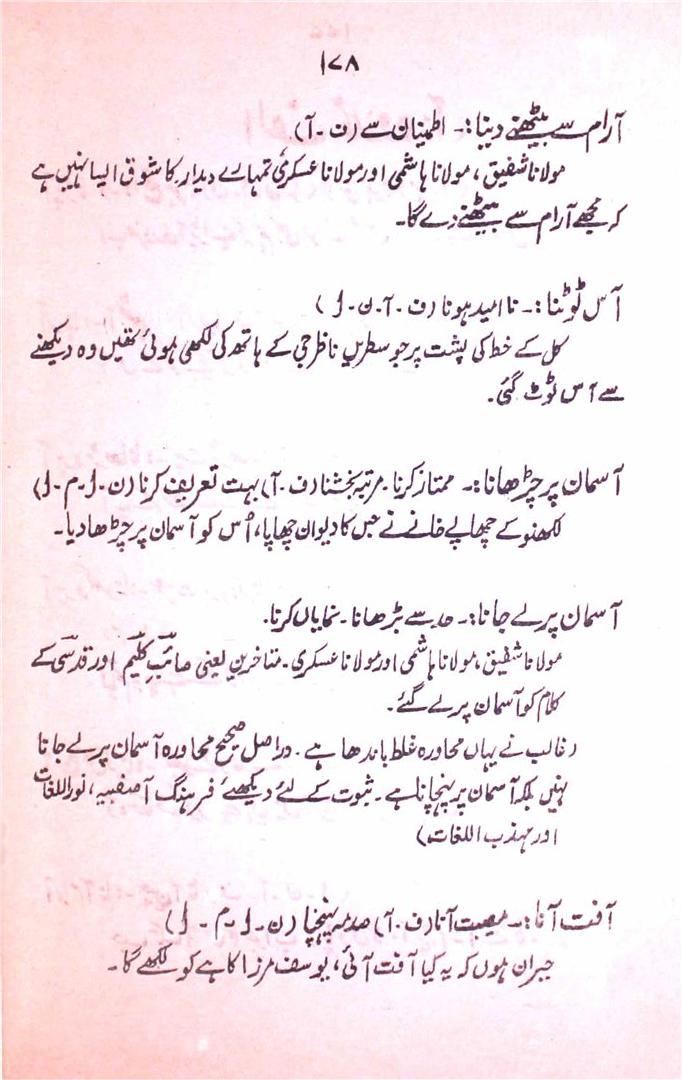 ۱۷۸
آرام سے بیٹھنے دینا:۔ اطمینان سے (ن۔آ)
مولانا شفیق، مولانا ہاشمی اور مولانا عسکری تمہارے دیدار کا شوق ایسا نہیں ہے
کہ مجھے آرام سے بیٹھنے دے گا۔
آس ٹوٹنا:۔ نا امید ہونا (ف۔آ۔ن۔ا)
کل کے خط کی پشت پر جو سطریں ناظر جی کے ہاتھ کی لکھی ہوئی تھیں وہ دیکھنے
سے آس ٹوٹ گئی۔
آسمان پر چڑھانا:۔ ممتاز کرنا۔ مرتبہ بخشنا (ف۔آ) بہت تعریف کرنا (ن۔ا۔م۔ا)
لکھنؤ کے چھاپے خانے نے جس کا دیوان چھاپا، اُس کو آسمان پر چڑھا دیا۔
آسمان پر لے جانا:۔ حد سے بڑھانا۔ نمایاں کرنا۔
مولانا شفیق، مولانا ہاشمی اور مولانا عسکری۔ متاخرین یعنی صائبؔ کلیمؔ اور قدسیؔ کے
کلام کو آسمان پر لے گئے۔
(غالب نے یہاں محاورہ غلط باندھا ہے۔ دراصل صحیح محاورہ آسمان پر لے جانا
نہیں بلکہ آسمان پر پہنچانا ہے۔ ثبوت کے لئے دیکھئے فرہنگ آصفیہ، نور اللغات
اور مہذب اللغات)
آفت آنا:۔ مصیبت آنا (ف۔آ) صدمہ پہنچا (ن۔ا۔م۔ا)
حیران ہوں کہ یہ کیا آفت آئی، یوسف مرزا کاہے کو لکھے گا۔